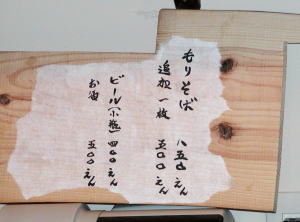 もりそば 八五〇えん
追加一枚 五〇〇えん
ビール(小瓶) 四〇〇えん
お酒 五〇〇えん